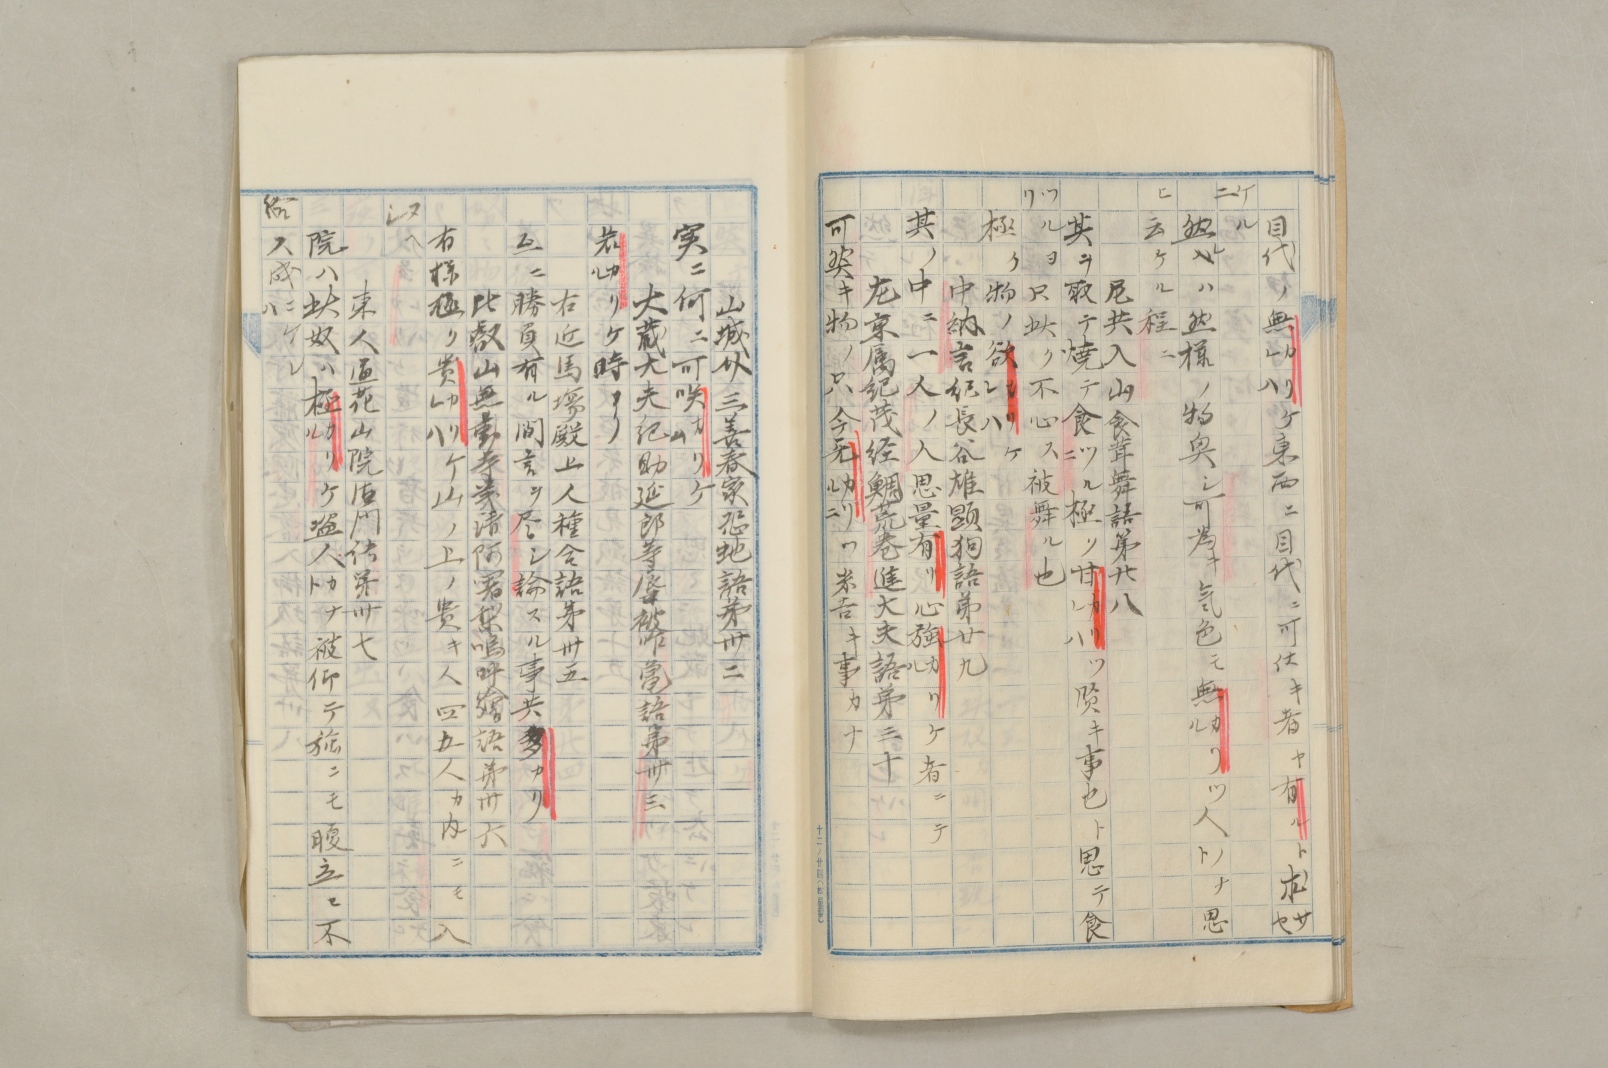 目代ノ無カリケレハ東西ニ目代ニ可仕キ者ヤ有ルト求サセ
ケルニ
然レハ然様ノ物奥シ可為キ気色モ無カリツル人トノナ思
ヒ
云ケル程ニ
尼共入山食茸舞語第廿八
其ヲ取テ焼テ食ツルニ極ク甘カリツレハ賢キ事也ト思テ食
ツルヨリ只此ク不心ス被舞ル也
極ク物ノ欲カリケレハ
中納言紀長谷雄顕狗語第廿九
其ノ中ニ一人ノ人思量有リ心強カリケル者ニテ
左京属紀茂経鯛荒巻進大夫語第三十
可咲キ物ノ只今死カリツルニ米吉キ事カナ
山城外三善春家恐虵語第卅二
実ニ何ニ可咲カリケム
大蔵大夫紀助延郎等唇被咋亀語第卅三
若カリケル時ヨリ
右近馬場殿上人種合語第卅五
互ニ勝負有ル間言ヲ尽シ論スル事共多カリ
比叡山無動寺義清阿闍梨嗚呼繪語第卅六
右様極ク貴カリケレハ山ノ上ノ貴キ人四五人カ内ニモ入
レタヘ
東人通花山院御門語第卅七
院ハ此奴ハ極カリケル盗人カナト被仰テ強ニモ腹立セ不
給
ス成ニケレハ